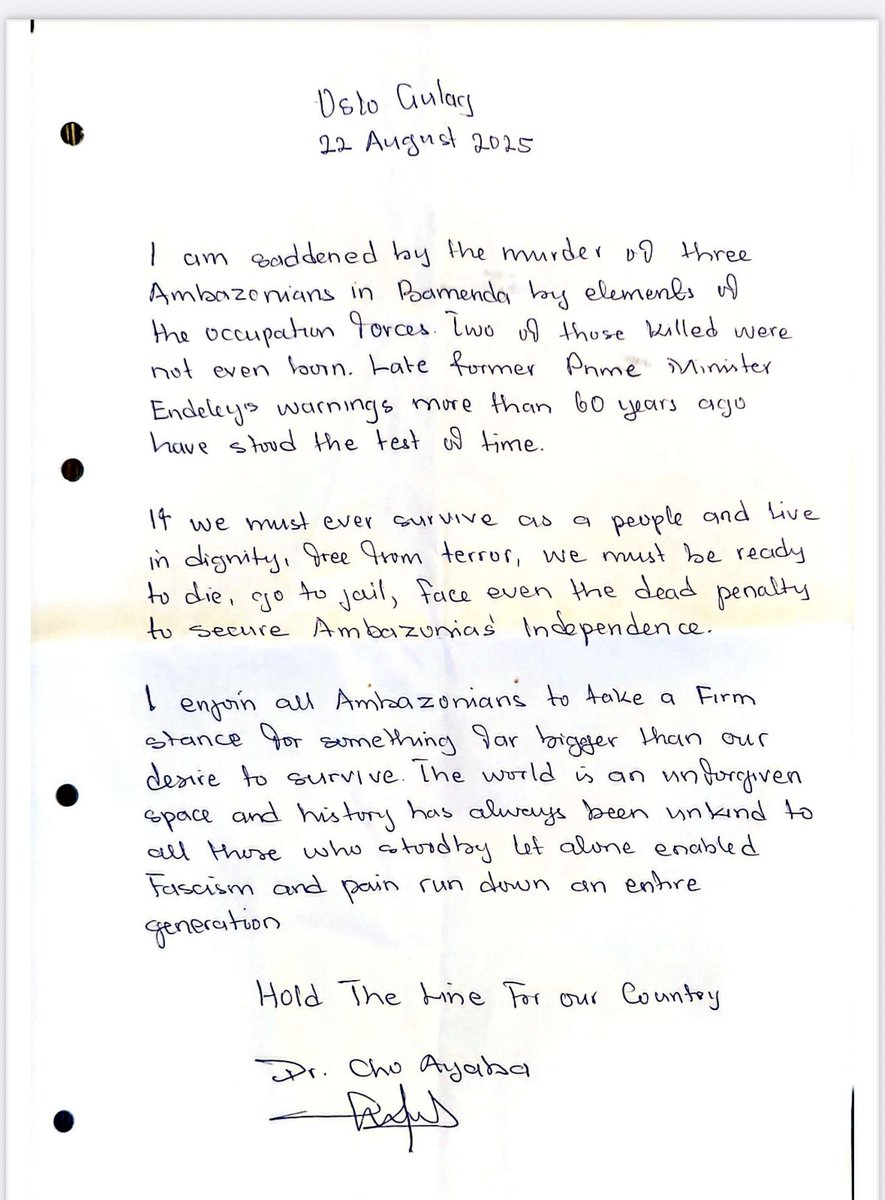 Oslo Gulag
22 August 2025
I am saddened by the murder of three
Ambazonians in Bamenda by elements of
the occupation forces. Two of those killed were
not even born. Late former Prime Minister
Endeley's warnings more than 60 years ago
have stood the test of time.
If we must ever survive as a people and live
in dignity, free from terror, we must be ready
to die, go to jail, face even the dead penalty
to secure Ambazonia's Independence.
I enjoin all Ambazonians to take a Firm
stance for something far bigger than our
desire to survive. The world is an unforgiven
space and history has always been unkind to
all those who stoodby let alone enabled
Fascism and pain run down an entire
generation
Hold The Line For our Country
Dr. Cho Ayaba